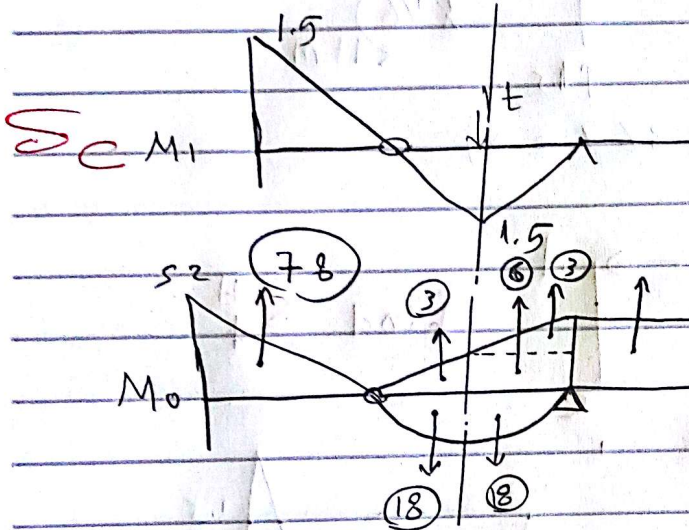 1.5
t
δc M1
1.5
52 78 3 6 3
M0
18 18